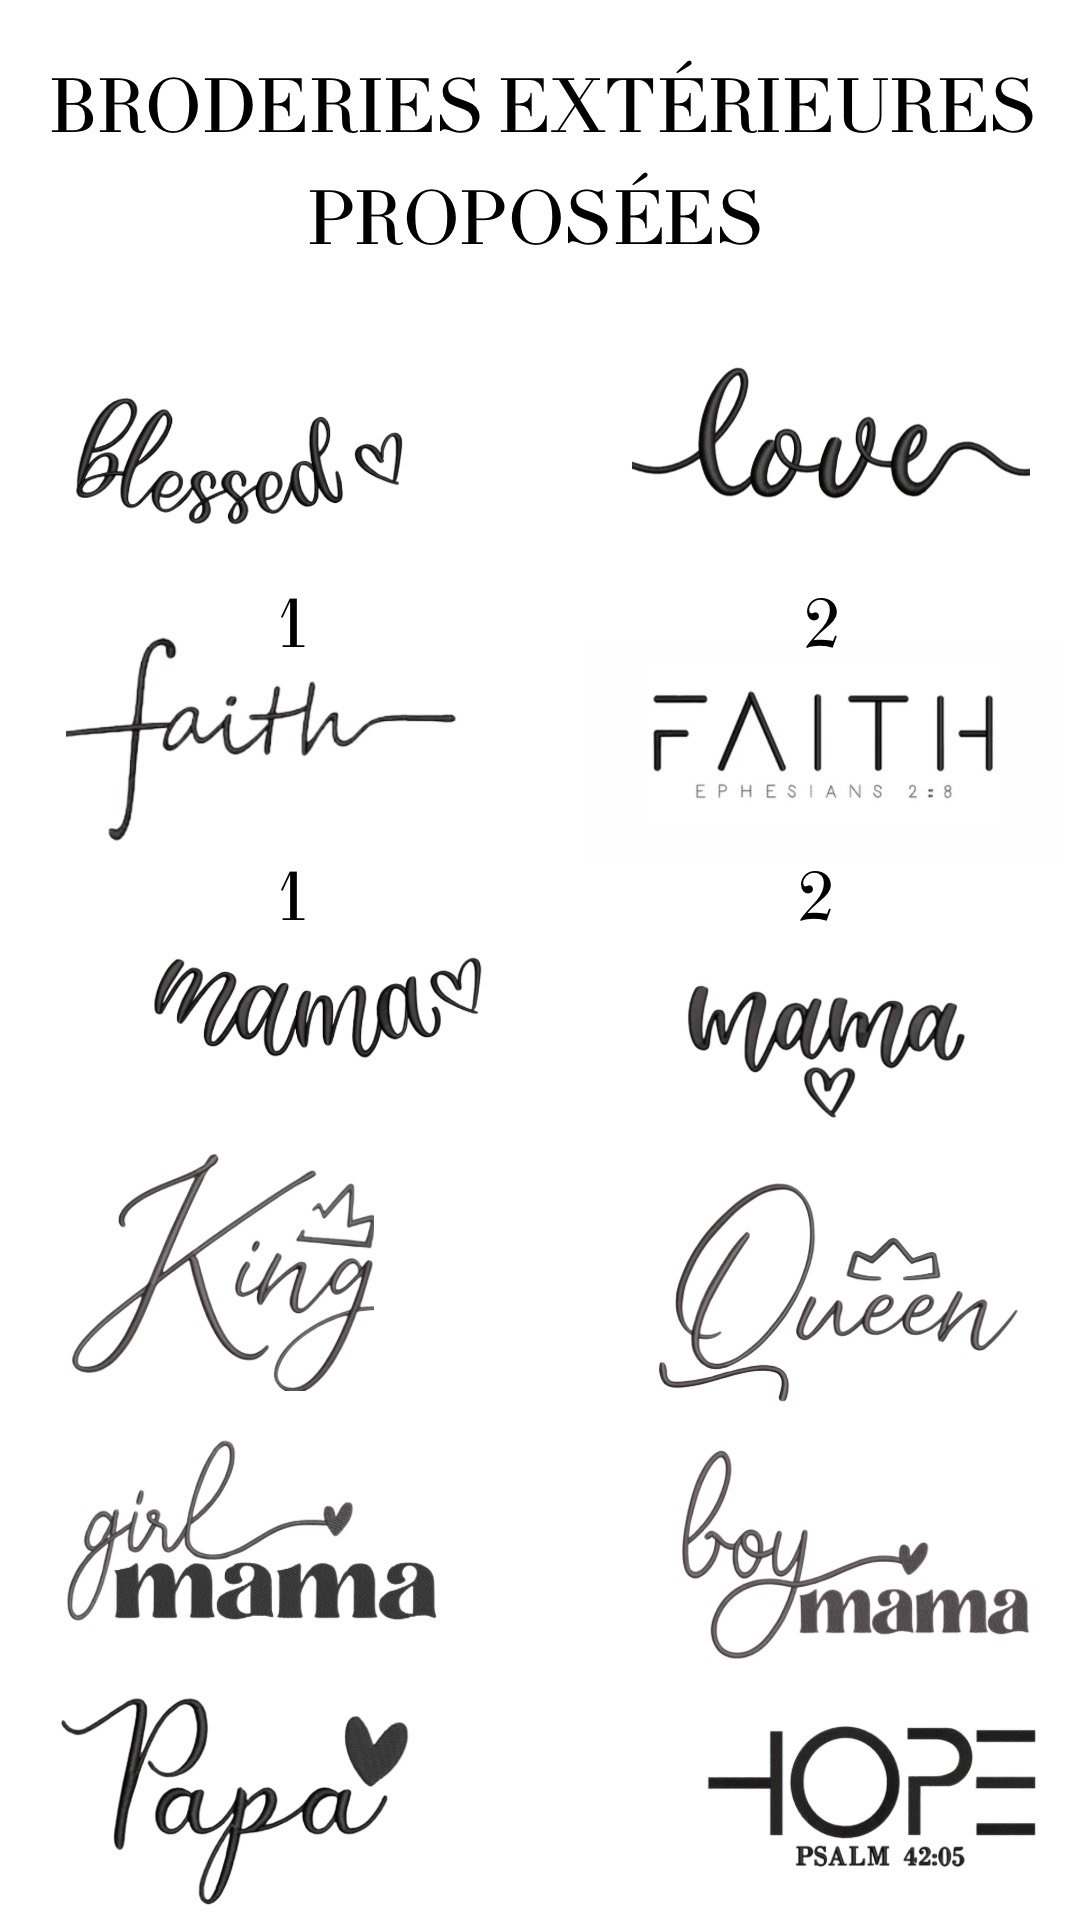 BRODERIES EXTÉRIEURES
PROPOSÉES
blessed
love
1
2
faith
FAITH
EPHESIANS 2:8
1
2
mama
mama
King
Queen
girl
mama
boy
mama
Papa
HOPE
PSALM 42:05